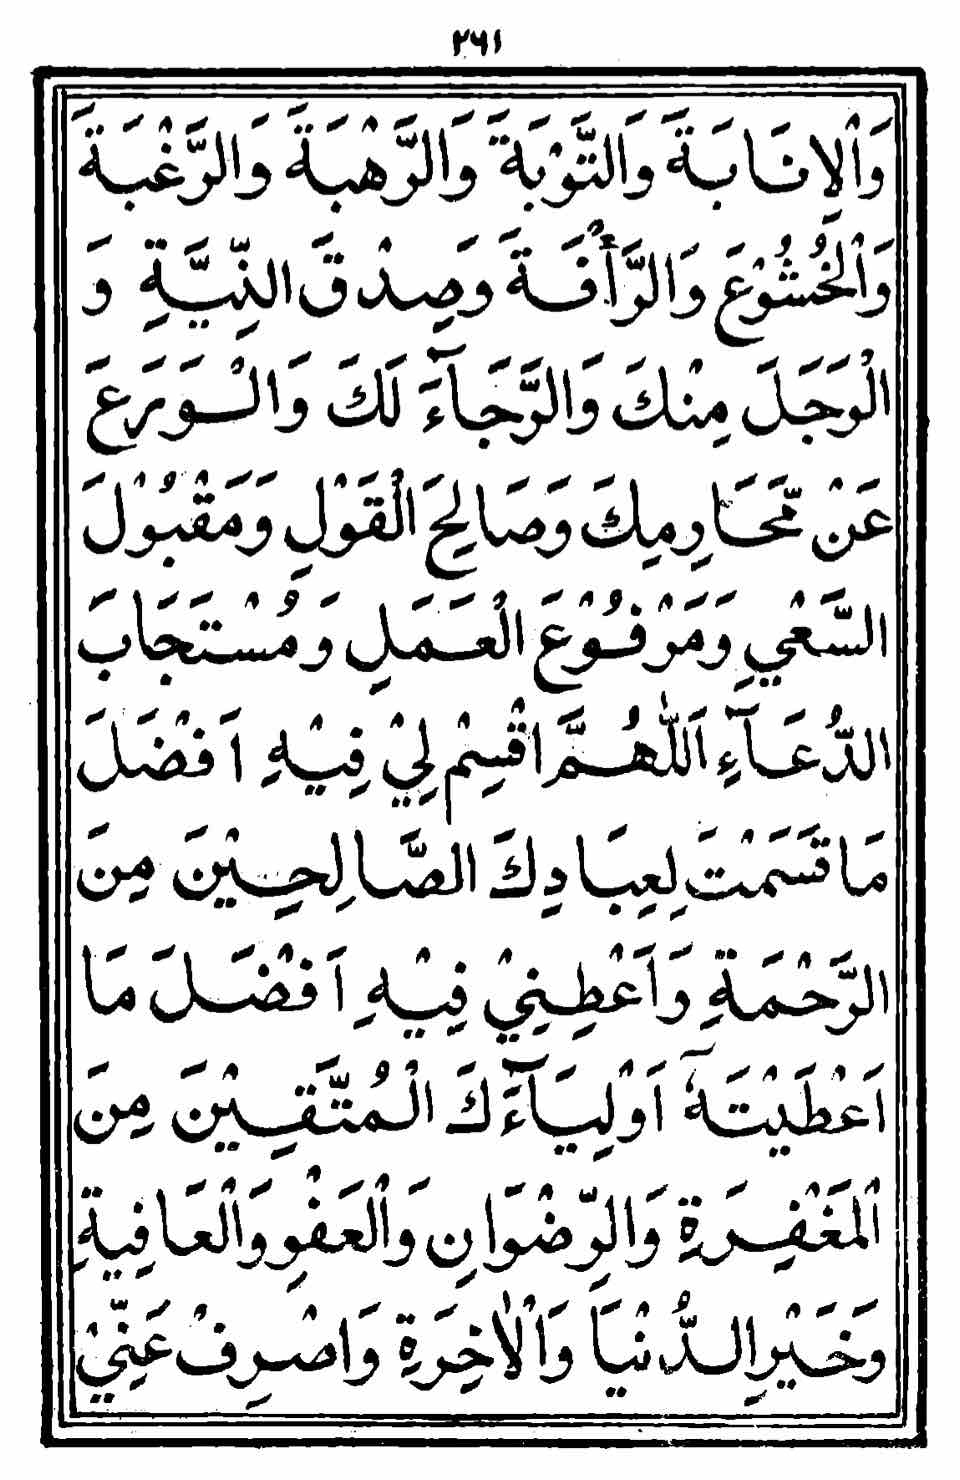 ۲۶۱
وَالْاِنَابَةَ وَالتَّوْبَةَ وَالرَّهْبَةَ وَالرَّغْبَةَ
وَالْخُشُوْعَ وَالرَّأْفَةَ وَصِدْقَ النِّيَّةِ وَ
الْوَجَلَ مِنْكَ وَالرَّجَآءَ لَكَ وَالْوَرَعَ
عَنْ مَّحَارِمِكَ وَصَالِحَ الْقَوْلِ وَمَقْبُوْلَ
السَّعْيِ وَمَرْفُوْعَ الْعَمَلِ وَمُسْتَجَابَ
الدُّعَآءِ اَللّٰهُمَّ اقْسِمْ لِيْ فِيْهِ اَفْضَلَ
مَا قَسَمْتَ لِعِبَادِكَ الصَّالِحِيْنَ مِنَ
الرَّحْمَةِ وَاَعْطِنِيْ فِيْهِ اَفْضَلَ مَا
اَعْطَيْتَهٗ اَوْلِيَآءَكَ الْمُتَّقِيْنَ مِنَ
الْمَغْفِرَةِ وَالرِّضْوَانِ وَالْعَفْوِ وَالْعَافِيَةِ
وَخَيْرِ الدُّنْيَا وَالْاٰخِرَةِ وَاصْرِفْ عَنِّيْ